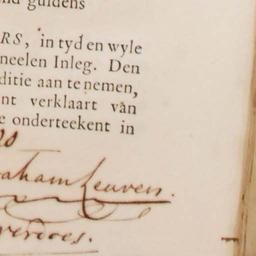 nd guldens
RS, in tyd en wyle
neelen Inleg. Den
ditie aan te nemen,
nt verklaart van
e onderteekent in
raham Leuven.